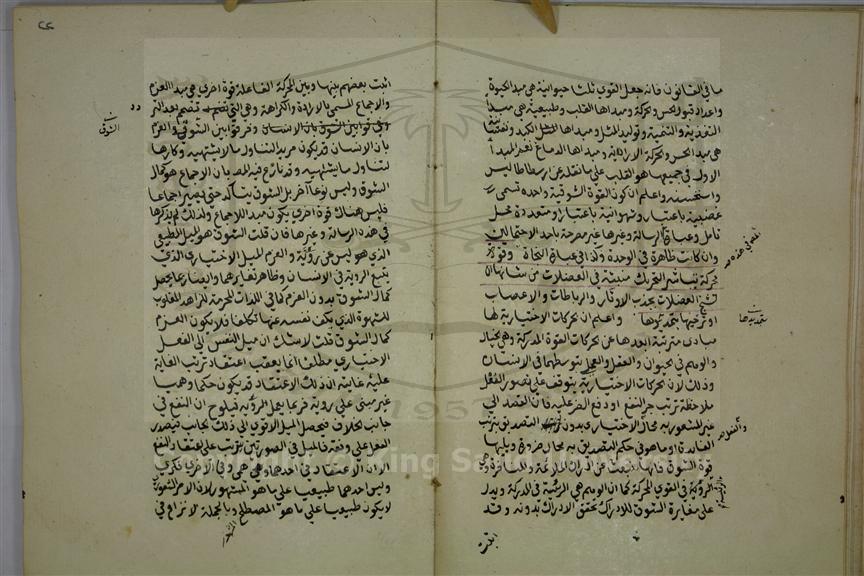 ما في القانون فانه جعل القوي ثلثا حيوانية هي مبدا الحيوة
واعداد قبول الحس والحركة ومبداها القلب وطبيعية هي مبدا
التغذية والتنمية وتوليد المثل ومبداها الكبد ونفسانية
هي مبدا الحس والحركة الارادية ومبداها الدماغ نعم المبدأ
الاول في جميعها هو القلب علي ما نقله عن ارسطاطاليس
واستحسنه واعلم ان كون القوة الشوقية واحدة تسمي
غضبية باعتبار وشهوانية باعتبار او متعددة محل
تامل وعبارة الرسالة وغيرها غير مصرحة باحد الاحتمالين
وان كانت ظاهرة في الوحدة وكذا في عبارة النجاة وقوة
محركة تباشر التحريك منبثة في العضلات من شانها ان
تشنج العضلات بجذب الاوتار والرباطات والاعصاب
او ترخيها بتمديدها واعلم ان للحركات الاختيارية لها
مبادي مترتبة ابعدها عن الحركات القوة المدركة وهي الخيال
والوهم في الحيوان والعقل العملي بتوسطهما في الانسان
وذلك لان الحركات الاختيارية يتوقف علي تصور الفعل
ملاحظة ترتب جر النفع او دفع الضر عليه فان القصد الي
غير المشعور به محال الاختياري بدون التصديق بترتب
الفايدة او ما هو في حكم التصديق به محال ضرورة ويليها
قوة الشوق فانها تنبعث عن ادراك الملايمة والمنافرة وهي
الرئيسة في القوي المحركة كما ان الوهم هي الرئيسة في المدركة ويدل
علي مغايرة الشوق للادراك تحقق الادراك بدونه وقد
اثبت
اثبت بعضهم بينها وبين المحركة الفاعلة قوة اخري هي مبدا العزم
والاجماع المسمي بالارادة والكراهة وهي التي تصمم بعد التردد
بين الشوق والعزم
بان الانسان قد يكون مريدا لتناول ما لا يشتهيه وكارها
لتناول ما يشتهيه وقد نازع فيه المص بان الاجماع هو كمال
الشوق وليس نوعا آخر بل الشوق يتاكد حتي يصير اجماعا
فليس هناك قوة اخري يكون مبدا للاجماع ولذلك لم يذكرها
في هذه الرسالة وغيرها فان قلت الشوق هو الميل الطبيعي
الذي هو ليس عن روية والعزم الميل الاختياري الذي
يتبع الروية في الانسان وظاهر تغايرهما وايضا ربما يحصل
كمال الشوق بدون العزم كما في اللذات المحرمة للزاهد المغلوب
للشهوة الذي يكف نفسه عنها تكلفا فلا يكون العزم
كمال الشوق قلت لا شك ان ميل النفس الي الفعل
الاختياري مطلقا انما يعقب اعتقاد ترتب الغاية
عليه غايته ان ذلك الاعتقاد قد يكون حكما وهميا
غير مبني علي روية فربما يعمل الروية فيلوح ان النفع في
جانب الخلاف فيحصل الميل الاقوي الي ذلك الجانب فيصدر
الفعل علي وفقه فالميل في الصورتين يترتب علي اعتقاد النفع
الا ان الاعتقاد في احدهما وهمي وفي الاخري فكري
وليس احدهما طبيعيا علي ما هو المشهور لان الامر الشعوري
لا يكون طبيعيا علي ما هو المصطلح وبالجملة لا نزاع في
King Sa
1957